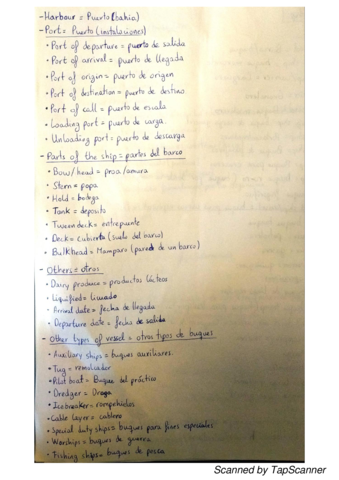 -Harbour = Puerto (bahía)
-Port = Puerto (instalaciones)
• Port of departure = puerto de salida
• Port of arrival = puerto de llegada
• Port of origin = puerto de origen
• Port of destination = puerto de destino
• Port of call = puerto de escala
• Loading port = puerto de carga.
• Unloading port = puerto de descarga
- Parts of the ship = partes del barco
• Bow/head = proa/amura
• Stern = popa
• Hold = bodega
• Tank = deposito
• Tween deck = entrepuente
• Deck = cubierta (suelo del barco)
• Bulkhead = Mamparo (pared de un barco)
- Others = otros
• Dairy produce = productos lácteos
• Liquified = licuado
• Arrival date = fecha de llegada
• Departure date = fecha de salida
- Other types of vessel = otros tipos de buques
• Auxiliary ships = buques auxiliares.
• Tug = remolcador
• Pilot boat = Buque del práctico
• Dredger = Draga
• Icebreaker = rompehielos
• Cable layer = cablero
• Special duty ships = buques para fines especiales
• Warships = buques de guerra
• Fishing ships = buques de pesca
Scanned by TapScanner